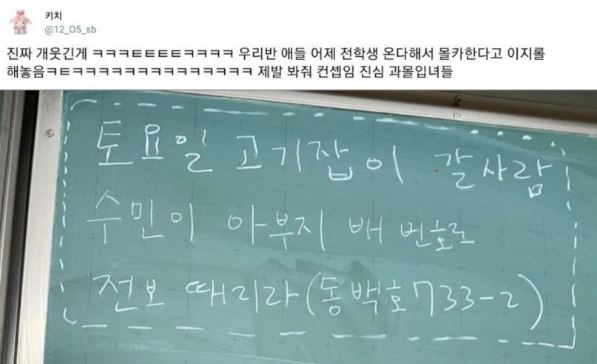 키치
@12_05_sb
진짜 개웃긴게 ㅋㅋㅋㅌㅌㅌㅌㅋㅋㅋㅋ 우리반 애들 어제 전학생 온다해서 몰카한다고 이지롤
해놓음ㅋㅌㅋㅋㅋㅋㅋㅋㅋㅋㅋㅋㅋㅋㅋㅋㅋ 제발 봐줘 컨셉임 진심 과몰입녀들
토요일 고기잡이 갈사람
수민이 아부지 배 번호로
전보 때리라(동백호733-2)